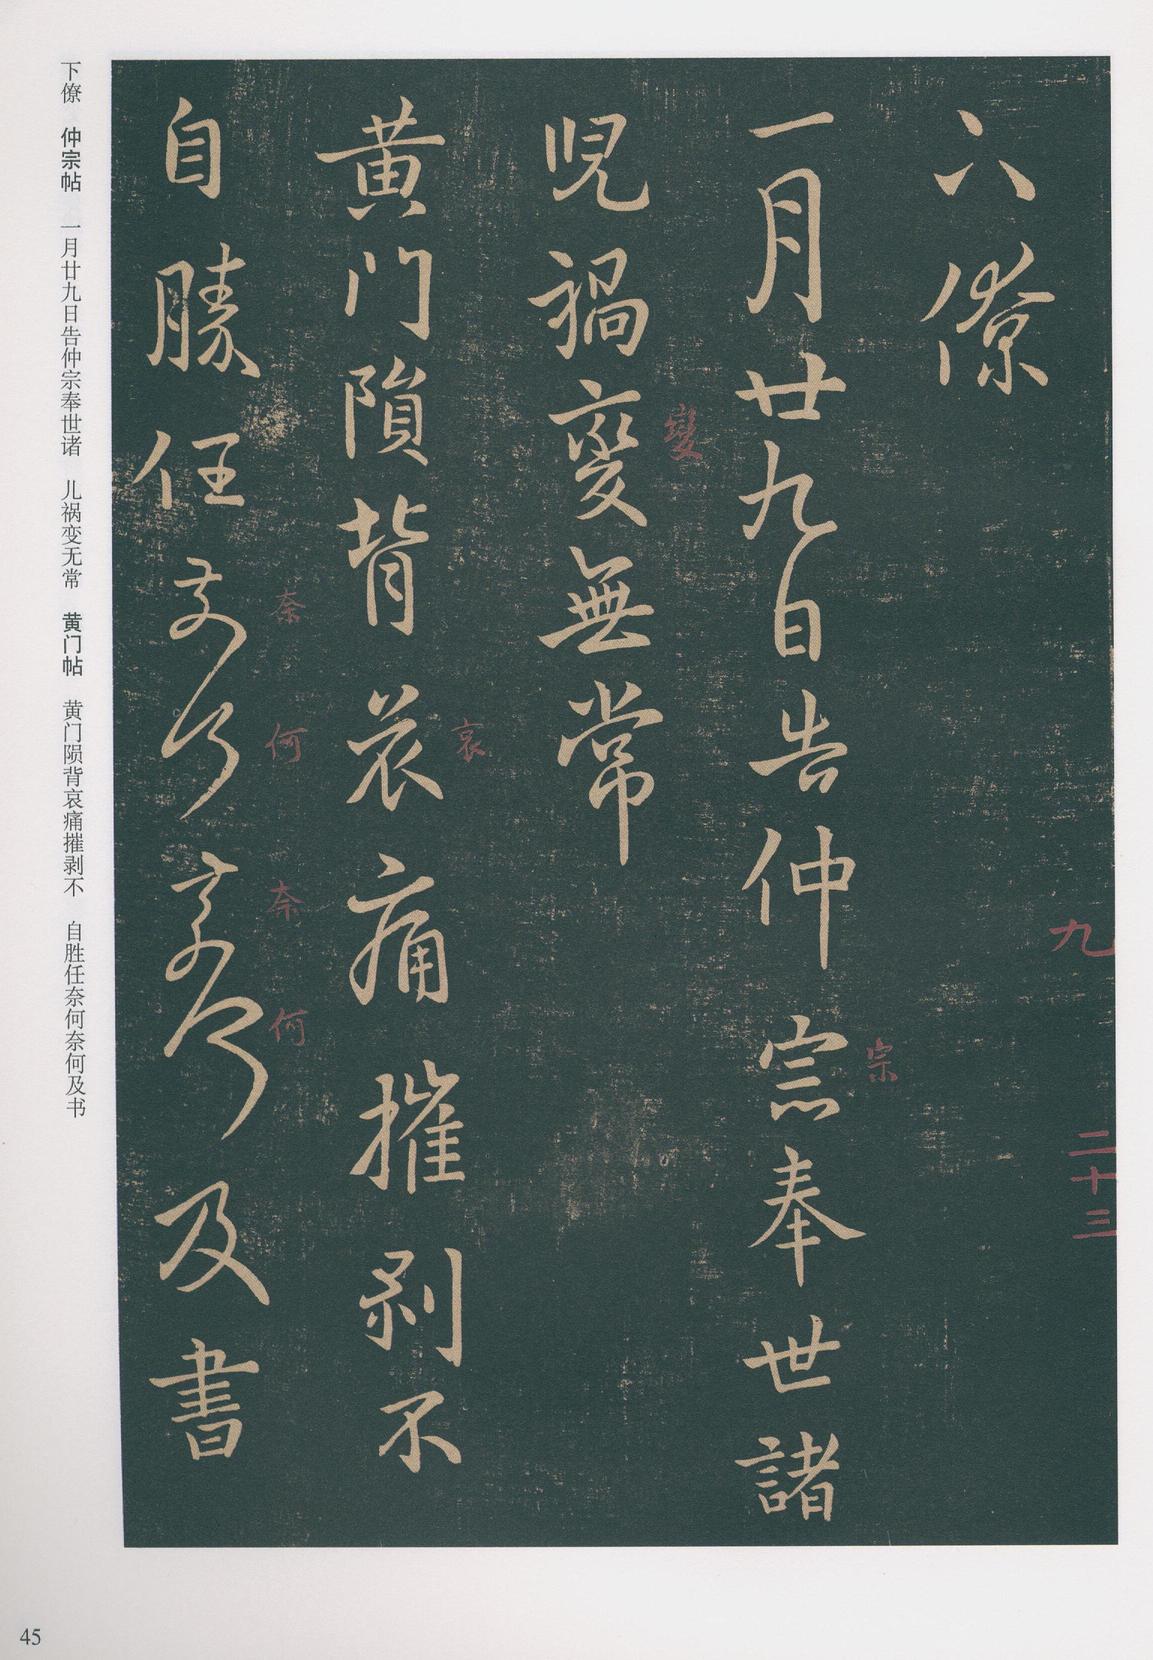 下僚
一月廿九日告仲宗奉世諸
兒禍變無常
黄门隕背哀痛摧剥不
自勝任奈何奈何及書
九
二十三
宗
變
哀
奈
何
奈
何
下僚 仲宗帖 一月廿九日告仲宗奉世诸 儿祸变无常 黄门帖 黄门陨背哀痛摧剥不 自胜任奈何奈何及书
45